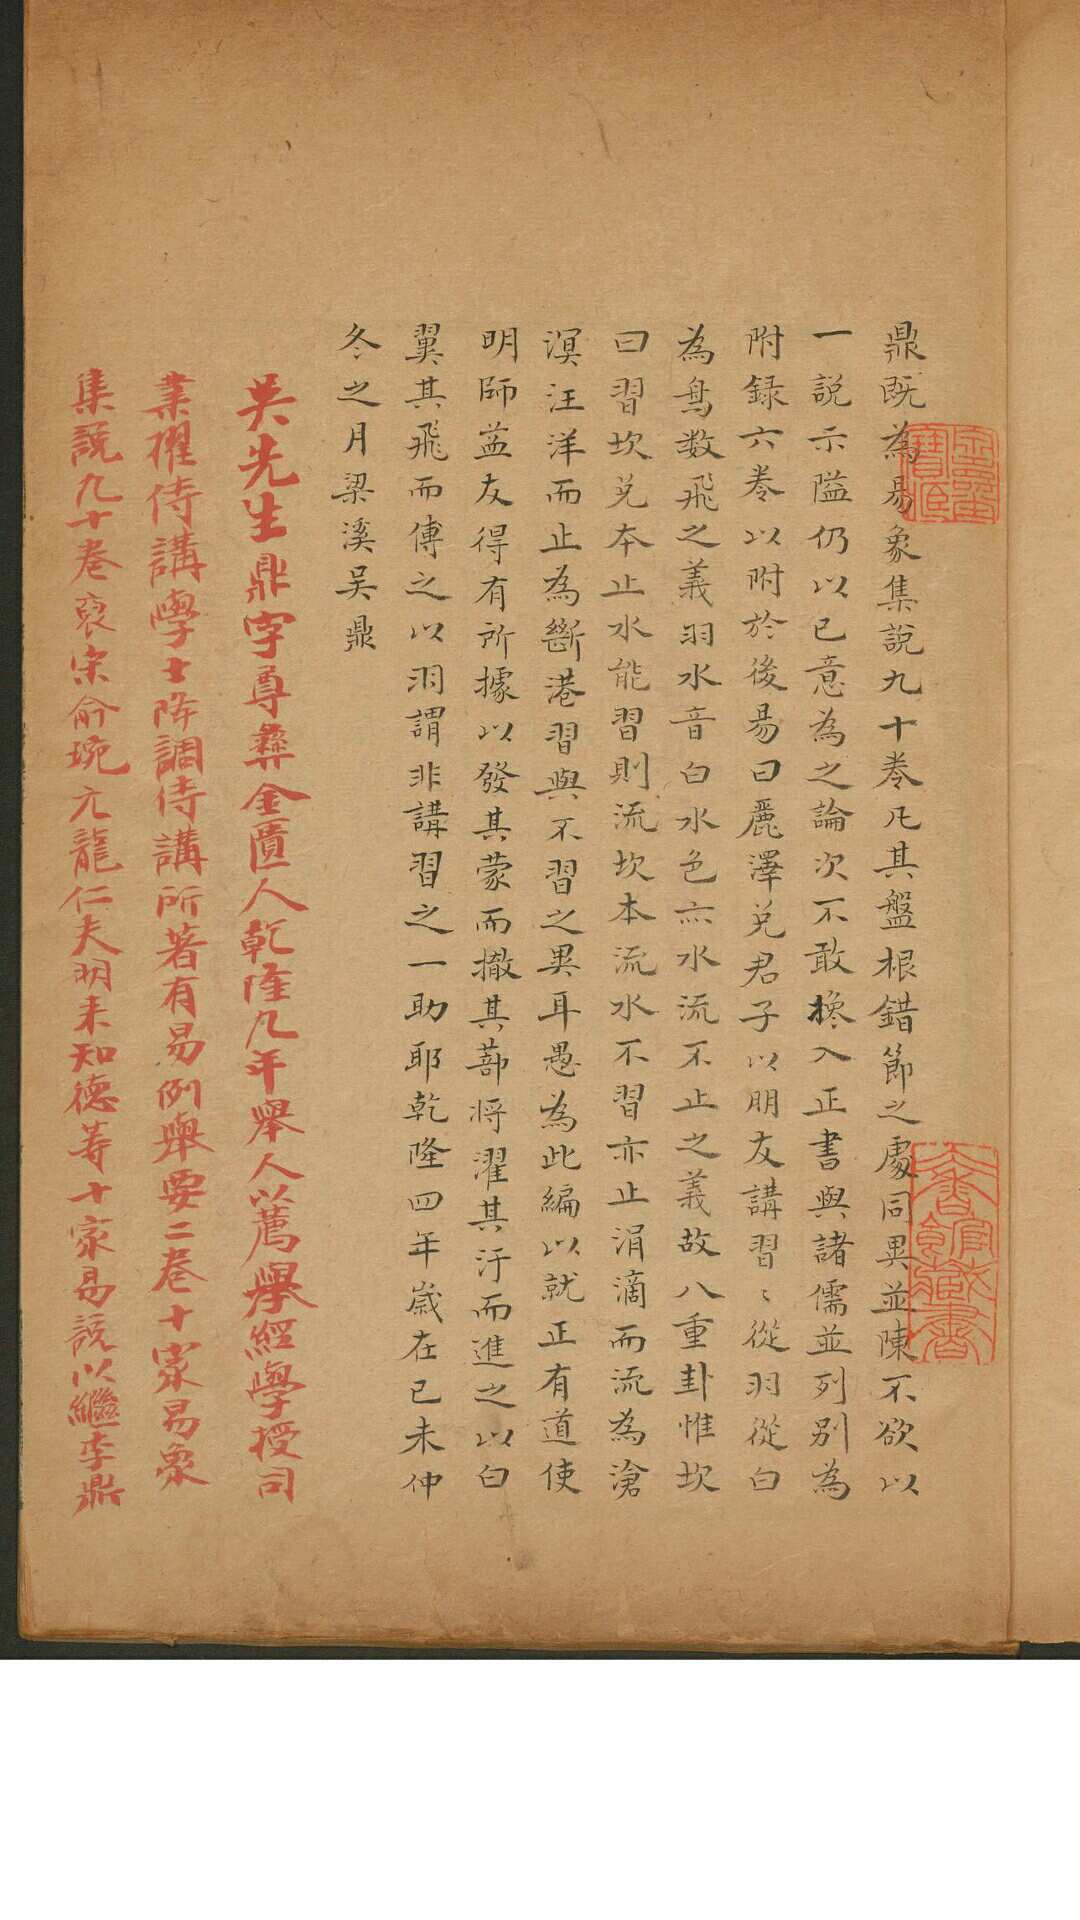 鼎既為易象集說九十卷凡其盤根錯節之處同異並陳不欲以
一說示隘仍以已意為之論次不敢攙入正書與諸儒並列別為
附録六卷以附於後易曰麗澤兌君子以朋友講習〻從羽從白
為鳥数飛之義羽水音白水色亦水流不止之義故八重卦惟坎
曰習坎兌本止水能習則流坎本流水不習亦止涓滴而流為滄
溟汪洋而止為斷港習與不習之異耳愚為此編以就正有道使
明師益友得有所據以發其蒙而撤其蔀將濯其汙而進之以白
翼其飛而傅之以羽謂非講習之一助耶乾隆四年嵗在已未仲
冬之月梁溪吴鼎
吴先生鼎字尊彝金匱人乾隆九年舉人以薦舉經學授司
業擢侍講學士降調侍講所著有易例舉要二卷十家易象
集說九十卷裒宋俞琬元龍仁夫明来知德等十家易說以繼李鼎
大書館藏書